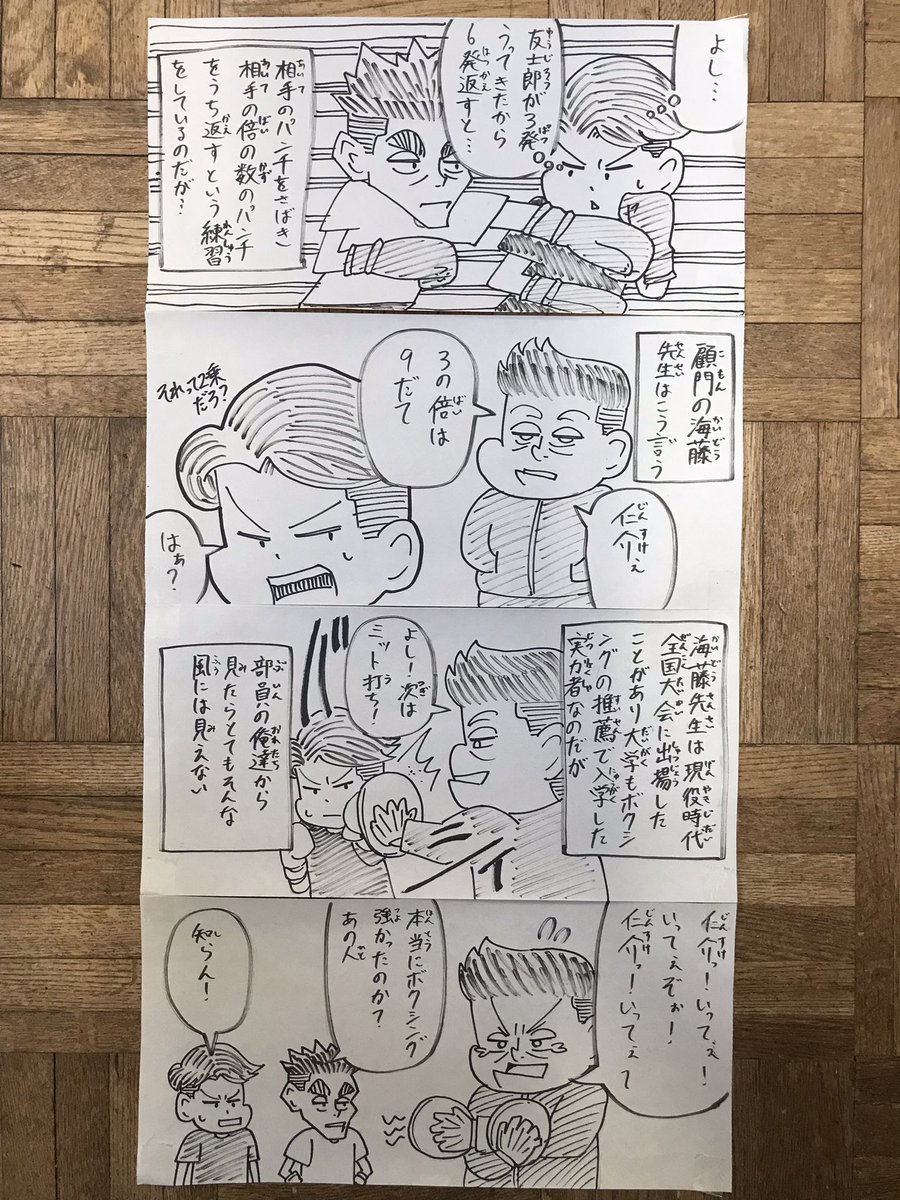 よし…
友士郎が3発
うってきたから
6発返すと…
相手のパンチをさばき
相手の倍の数のパンチ
をうち返すという練習
をしているのだが…
顧門の海藤
先生はこう言う
仁介ぇ
3の倍は
9だて
それって2乗
だろ?
はぁ?
海藤先生は現役時代
全国大会に出場した
ことがあり大学もボクシ
ングの推薦で入学した
実力者なのだが
よし!次は
ミット打ち!
バ
イ
部員の俺達から
見たらとてもそんな
風には見えない
仁介っ!いってぇ!
いってぇぞぉ!
仁介っ!いってぇて
本当にボクシング
強かったのか?
あの人
知らん!